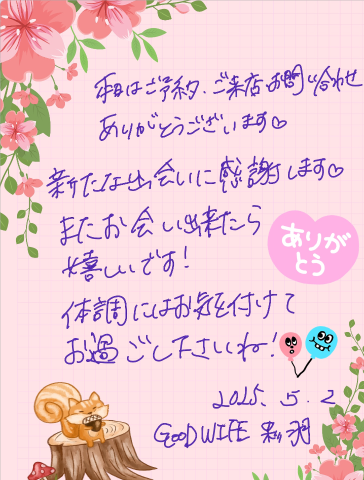 本日はご予約、ご来店、お問い合わせ
ありがとうございます♡
新たな出会いに感謝します♡
またお会い出来たら
嬉しいです!
ありが
とう
体調にはお気を付けて
お過ごし下さいね!
2025. 5. 2
GOOD WIFE